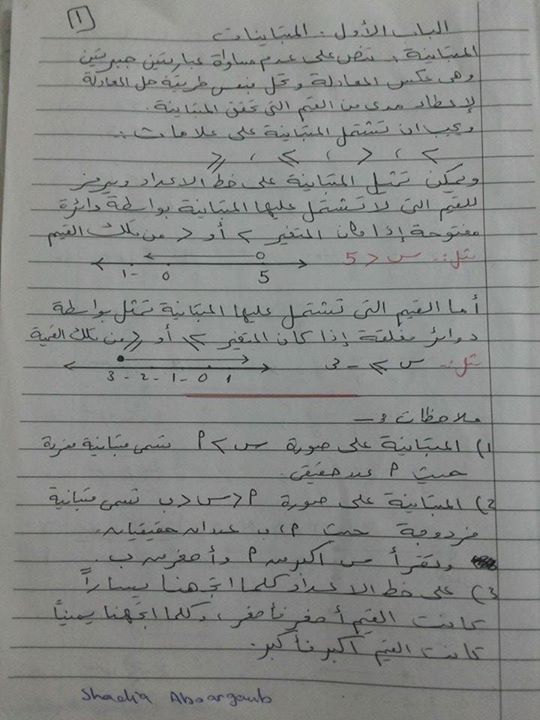 ١
الباب الأول : المتباينات
المتباينة : تنص على عدم مساواة عبارتين جبريتين
وهي عكس المعادلة وتحل بنفس طريقة حل المعادلة
لإعطاء مدى من القيم التي تحقق المتباينة .
ويجب ان تشتمل المتباينة على علامات :
> ، < ، ≥ ، ≤
ويمكن تمثيل المتباينة على خط الاعداد ويرمز
للقيم التي لا تشتمل عليها المتباينة بواسطة دائرة
مفتوحة إذا كان المتغير > أو < من تلك القيم
مثل: س < 5
-1 0 5
أما القيم التي تشتمل عليها المتباينة تمثل بواسطة
دوائر مغلقة إذا كان المتغير ≥ أو ≤ من تلك القيمة
مثل: س ≥ -3
3 - 2 - 1 - 0 1
ملاحظات :-
1) المتباينة على صورة س > P تسمى متباينة مفردة
حيث P عدد حقيقي .
2) المتباينة على صورة P < س < ب تسمى متباينة
مزدوجة حيث P ، ب عددان حقيقيان .
وتقرأ س اكبر من P وأصغر من ب .
3) على خط الاعداد كلما اتجهنا يساراً
كانت القيم أصغر فأصغر ، وكلما اتجهنا يميناً
كانت القيم اكبر فأكبر .
Shadia Aboargoub